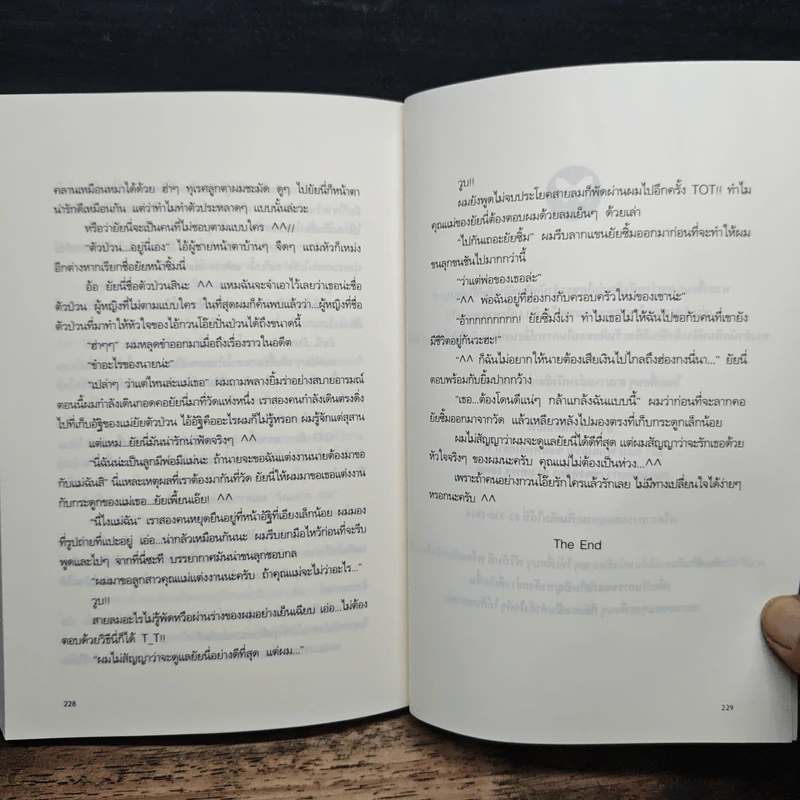 คลานเหมือนหมาได้ด้วย ฮ่าๆ ทุเรศลูกตาผมชะมัด ดูๆ ไปยัยนี่ก็หน้าตา
น่ารักดีเหมือนกัน แต่ว่าทำไมทำตัวประหลาดๆ แบบนั้นล่ะวะ
หรือว่ายัยนี่จะเป็นคนที่ไม่ชอบตามแบบใคร ^^//
“ตัวป่วน...อยู่นี่เอง” ไอ้ผู้ชายหน้าตาบ้านๆ จืดๆ แถมหัวก็เหม่ง
อีกต่างหากเรียกชื่อยัยหน้าซิ้มนี่
อ้อ ยัยนี่ชื่อตัวป่วนสินะ ^^ แหมฉันจะจำเอาไว้เลยว่าเธอน่ะชื่อ
ตัวป่วน ผู้หญิงที่ไม่ตามแบบใคร ในที่สุดผมก็ค้นพบแล้วว่า...ผู้หญิงที่ชื่อ
ตัวป่วนที่มาทำให้หัวใจของไอ้กวนโอ๊ยปั่นป่วนได้ถึงขนาดนี้
“ฮ่าๆๆ” ผมหลุดขำออกมาเมื่อถึงเรื่องราวในอดีต
“ขำอะไรของนายน่ะ”
“เปล่าๆ ว่าแต่ไหนล่ะแม่เธอ” ผมถามพลางยิ้มร่าอย่างสบายอารมณ์
ตอนนี้ผมกำลังเดินกอดคอยัยนี่มาที่วัดแห่งหนึ่ง เราสองคนกำลังเดินตรงดิ่ง
ไปที่เก็บอัฐิของแม่ยัยตัวป่วน ไอ้อัฐิคืออะไรผมก็ไม่รู้หรอก ผมรู้จักแต่สุสาน
แต่แหม...ยัยนี่มันน่ารักน่าฟัดจริงๆ ^^
“นี่ฉันน่ะเป็นลูกมีพ่อมีแม่นะ ถ้านายจะขอฉันแต่งงานนายต้องมาขอ
กับแม่ฉันสิ” นี่แหละเหตุผลที่เราต้องมากันที่วัด ยัยนี่ให้ผมมาขอเธอแต่งงาน
กับกระดูกของแม่เธอ...ยัยเพี้ยนเอ๊ย! ^^
“นี่ไงแม่ฉัน” เราสองคนหยุดยืนอยู่ที่หน้าอัฐิที่เอียงเล็กน้อย ผมมอง
ที่รูปถ่ายที่แปะอยู่ เอ่อ...น่ากลัวเหมือนกันนะ ผมรีบยกมือไหว้ก่อนที่จะรีบ
พูดและไปๆ จากที่นี่ซะที บรรยากาศมันน่าขนลุกชอบกล
“ผมมาขอลูกสาวคุณแม่แต่งงานนะครับ ถ้าคุณแม่จะไม่ว่าอะไร...”
วูบ!!
สายลมอะไรไม่รู้พัดหวือผ่านร่างของผมอย่างเย็นเฉียบ เอ่อ...ไม่ต้อง
ตอบด้วยวิธีนี้ก็ได้ T_T!!
“ผมไม่สัญญาว่าจะดูแลยัยนี่อย่างดีที่สุด แต่ผม...”
228
วูบ!!
ผมยังพูดไม่จบประโยคสายลมก็พัดผ่านผมไปอีกครั้ง TOT!! ทำไม
คุณแม่ของยัยนี่ต้องตอบผมด้วยลมเย็นๆ ด้วยเล่า
“ไปกันเถอะยัยซิ้ม” ผมรีบลากแขนยัยซิ้มออกมาก่อนที่จะทำให้ผม
ขนลุกขนชันไปมากกว่านี้
“ว่าแต่พ่อของเธอล่ะ”
“^^ พ่อฉันอยู่ที่ฮ่องกงกับครอบครัวใหม่ของเขาน่ะ”
“อ้ากกกกกกกก! ยัยซิ้มงี่เง่า ทำไมเธอไม่ให้ฉันไปขอกับคนที่เขายัง
มีชีวิตอยู่กันวะฮะ!”
“^^ ก็ฉันไม่อยากให้นายต้องเสียเงินไปไกลถึงฮ่องกงนี่นา...” ยัยนี่
ตอบพร้อมกับยิ้มปากกว้าง
“เธอ...ต้องโดนดีแน่ๆ กล้าแกล้งฉันแบบนี้” ผมว่าก่อนที่จะลากคอ
ยัยซิ้มออกมาจากวัด แล้วเหลียวหลังไปมองตรงที่เก็บกระดูกเล็กน้อย
ผมไม่สัญญาว่าผมจะดูแลยัยนี่ได้ดีที่สุด แต่ผมสัญญาว่าจะรักเธอด้วย
หัวใจจริงๆ ของผมนะครับ คุณแม่ไม่ต้องเป็นห่วง...^^
เพราะถ้าคนอย่างกวนโอ๊ยรักใครแล้วรักเลย ไม่มีทางเปลี่ยนใจได้ง่ายๆ
หรอกนะครับ ^^
The End
229